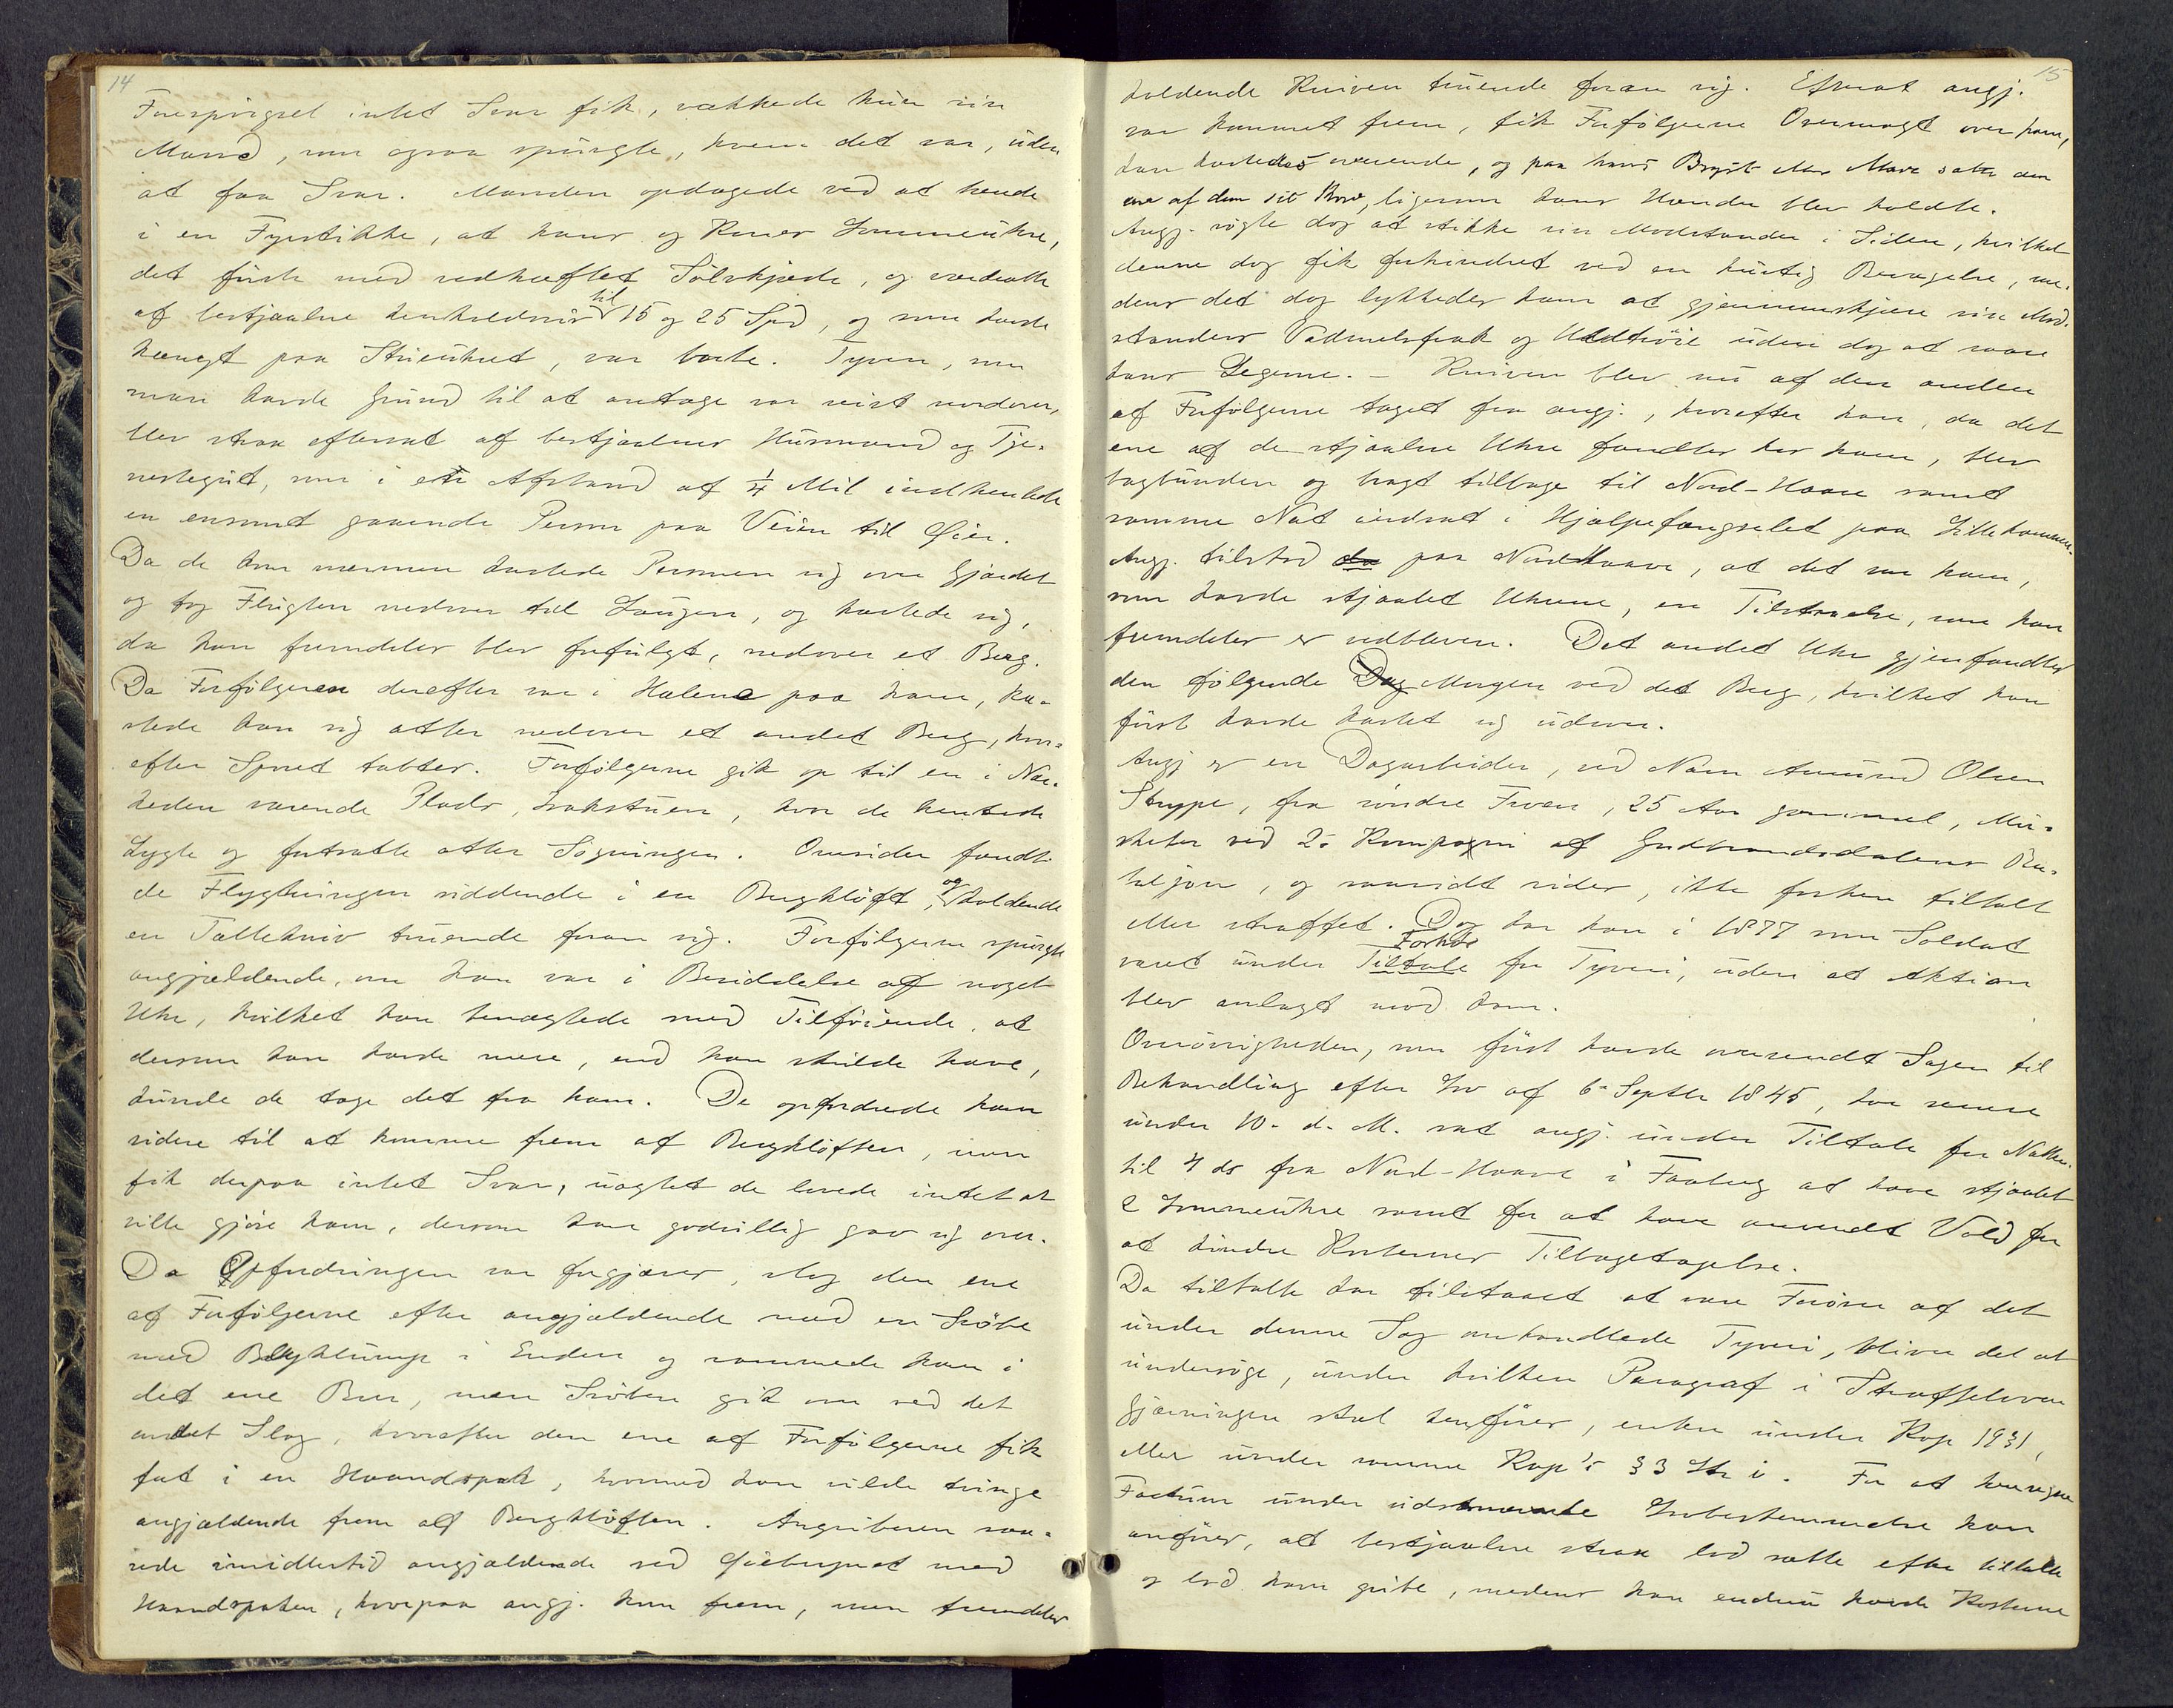 14
Forespørgsel intet Svar fik, vækkede hun sin
Mand, som ogsaa spurgte, hvem det var, uden
at faa Svar. Manden opdagede ved at tænde
i en Fyrstikke, at hans og Kones Lommeuhre,
det første med vedhæftet Sølvkjæde, og værdsatte
af bestjaalne henholdsvis til 15 og 25 Spd, og som havde
hængt paa Stueuhret, var borte. Tyven, som
man havde Grund til at antage var reist nordover,
blev strax eftersat af bestjaalnes Husmand og Tje-
nestegut, som i en Afstand af 1/4 Mil indhentede
en ensomt gaaende Person paa Veien til Øier.
Da de kom nærmere kastede Personen sig over Gjærdet
og tog Flugten nedover til Laugen, og kastede sig,
da han fremdeles blev forfulgt, nedover et Berg.
Da Forfølgeren derefter var i Halene paa ham, ka-
stede han sig atter nedover et andet Berg, hvor-
efter Sporet tabtes. Forfølgerne gik op til en i Nær-
heden værende Plads, , hvor de hentede
Lygte og fortsatte atter Søgningen. Omsider fandt
de Flygtningen siddende i en Bergkløft, og holdende
en Tollekniv truende foran sig. Forfølgerne spurgte
angjældende, om han var i Besiddelse af noget
Uhr, hvilket han benægtede med Tilføiende, at
dersom han havde mere, end han skulde have,
kunde de tage det fra ham. De opfordrede ham
videre til at komme frem af Bergkløften, men
fik derpaa intet Svar, uagtet de lovede intet at
ville gjøre ham, dersom han godvillig gav sig over.
Da Opfordringen var forgjæves, slog den ene
af Forfølgerne efter angjældende med en Svøbe
med Blyklump i Enden og rammede ham i
det ene Ben, men Svøben gik om ved det
andet Slag, hvorefter den ene af Forfølgerne fik
fat i en Haandspak, hvormed han vilde tvinge
angjældende frem af Bergkløften. Angriberen saa-
rede imidlertid angjældende ved Øiebrynet med
Haandspaken, hvorpaa angj. kom frem, men fremdeles
15
holdende Kniven truende foran sig. Efterat angj.
var kommet frem, fik Forfølgerne Overmagt over ham,
han kastedes overende, og paa hans Bryst eller Mave satte den
ene af dem sit Knæ, ligesom hans Hænder blev holdte.
Angj. søgte dog at stikke sin Modstander i Siden, hvilket
denne dog fik forhindret ved en hurtig Bevægelse, me-
dens det dog lykkedes ham at gjennemskjære sin Mod-
standers Vadmelsfrak og Uldtrøie uden dog at saare
hans Legeme. – Kniven blev nu af den anden
af Forfølgerne taget fra angj., hvorefter han, da det
ene af de stjaalne Uhre fandtes hos ham, blev
bagbunden og bragt tilbage til Nord-Haave samt
samme Nat indsat i Hjælpefængselet paa Lillehammer.
Angj. tilstod da paa Nordhaave, at det var ham,
som havde stjaalet Uhrene, en Tilstaaelse, som han
fremdeles er vedbleven. Det andet Uhr gjenfandtes
den følgende Dag Morgen ved det Berg, hvilket han
først havde kastet sig udover.
Angj er en Dagarbeider, ved Navn Amund Olsen
Stuppe, fra søndre Fron, 25 Aar gammel, Mu-
sketer ved 2. Kompagni af Gudbrandsdalens Ba-
taljon, og saavidt vides, ikke forhen tiltalt
eller straffet. Dog har han i 1877 som Soldat
været under Tiltale Forhør for Tyveri, uden at Aktion
blev anlagt mod ham.
Overøvrigheden, som først havde oversendt Sagen til
Behandling efter Lov af 6. Septbr 1845, har senere
under 10. d. M. sat angj. under Tiltale for Natten
til 4 ds fra Nord-Haave i Faaberg at have stjaalet
2 Lommeuhre samt for at have anvendt Vold for
at hindre Kosternes Tilbagetagelse.
Da tiltalte har tilstaaet at være Forøver af det
under denne Sag omhandlede Tyveri, bliver det at
undersøge, under hvilken Paragraf i Straffeloven
Gjerningen skal henføres, enten under Kap 19 § 1,
eller under samme Kap's § 3 Litr i. For at henregne
Factum under sidstnævnte Lovbestemmelse kan
anføres, at bestjaalne strax lod sætte efter tiltalte
og lod ham gribe, medens han endnu havde Kosterne